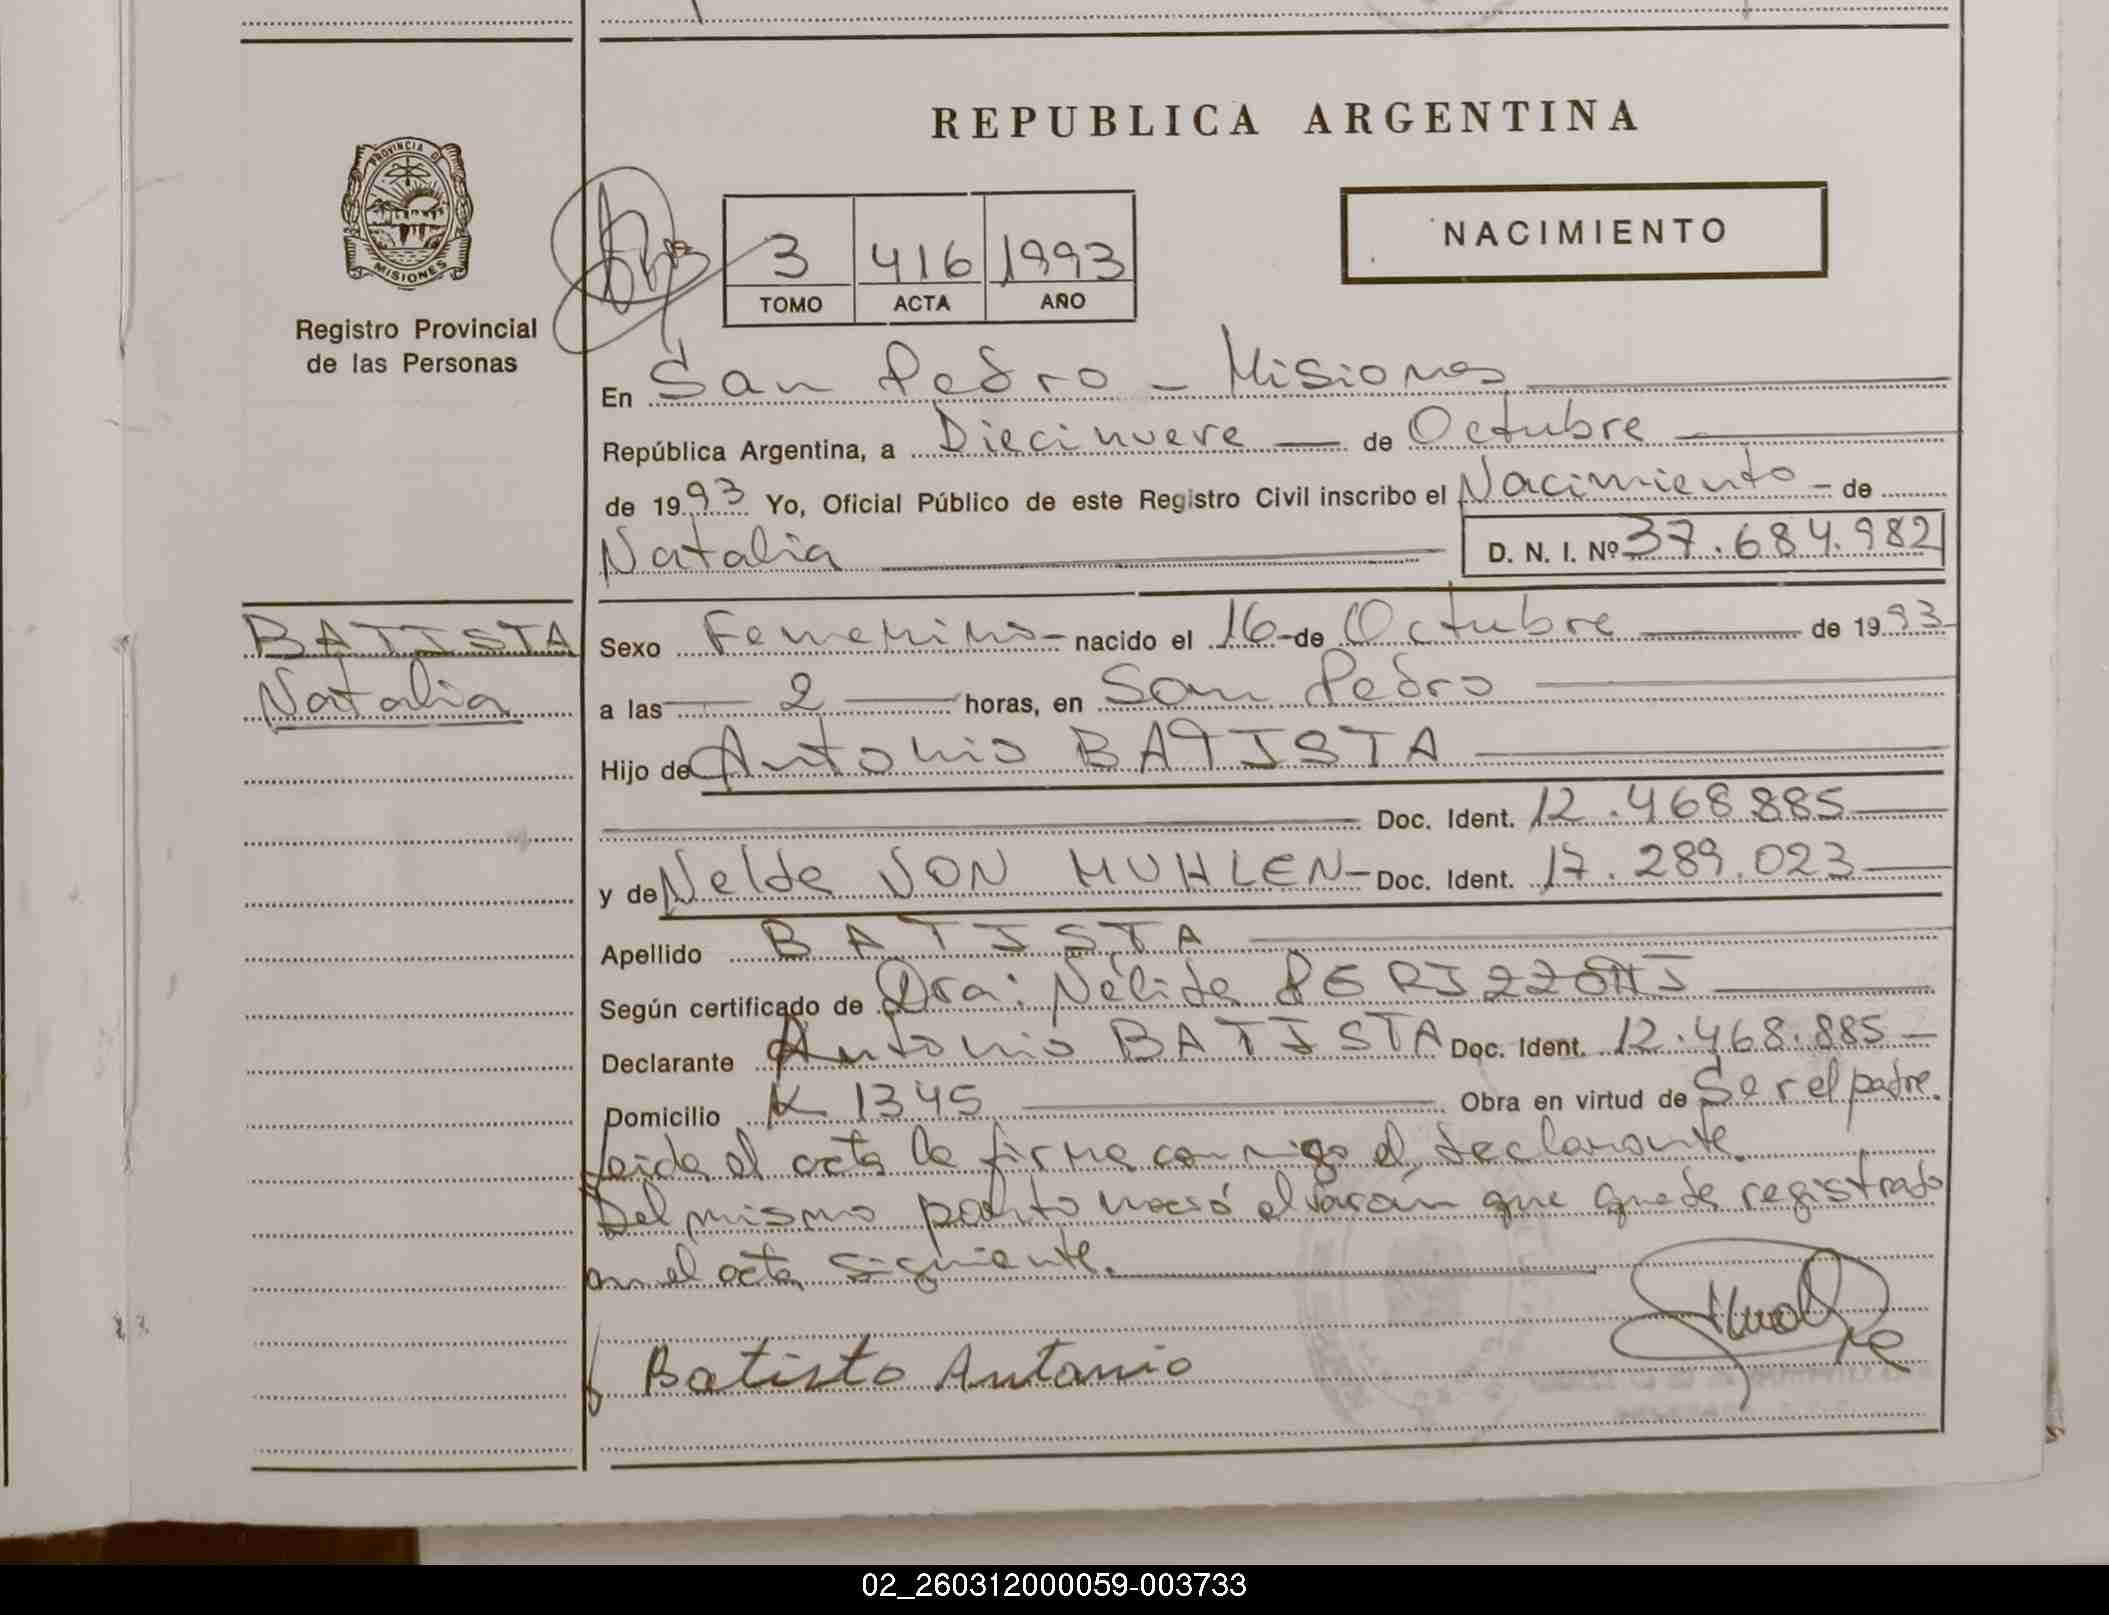 REPUBLICA ARGENTINA
PROVINCIA DE
MISIONES
Registro Provincial
de las Personas
3 416 1993
TOMO ACTA AÑO
NACIMIENTO
En San Pedro - Misiones
República Argentina, a Diecinueve de Octubre
de 1993 Yo, Oficial Público de este Registro Civil inscribo el Nacimiento - de
Natalia D. N. I. Nº 37.684.982
BATISTA
Natalia
Sexo Femenino - nacido el 16 - de Octubre de 1993
a las 2 horas, en San Pedro
Hijo de Antonio BATISTA
Doc. Ident. 12.468.885
y de Nelda VON MUHLEN - Doc. Ident. 17.289.023
Apellido BATISTA
Según certificado de Dra: Nélida PERIZZONI
Declarante Antonio BATISTA Doc. Ident. 12.468.885 -
Domicilio K 1345 Obra en virtud de Ser el padre.
Leida el acta la firma conmigo el declarante.
Del mismo parto nació el varón que queda registrado
en el acta siguiente.
Batista Antonio
02_260312000059-003733